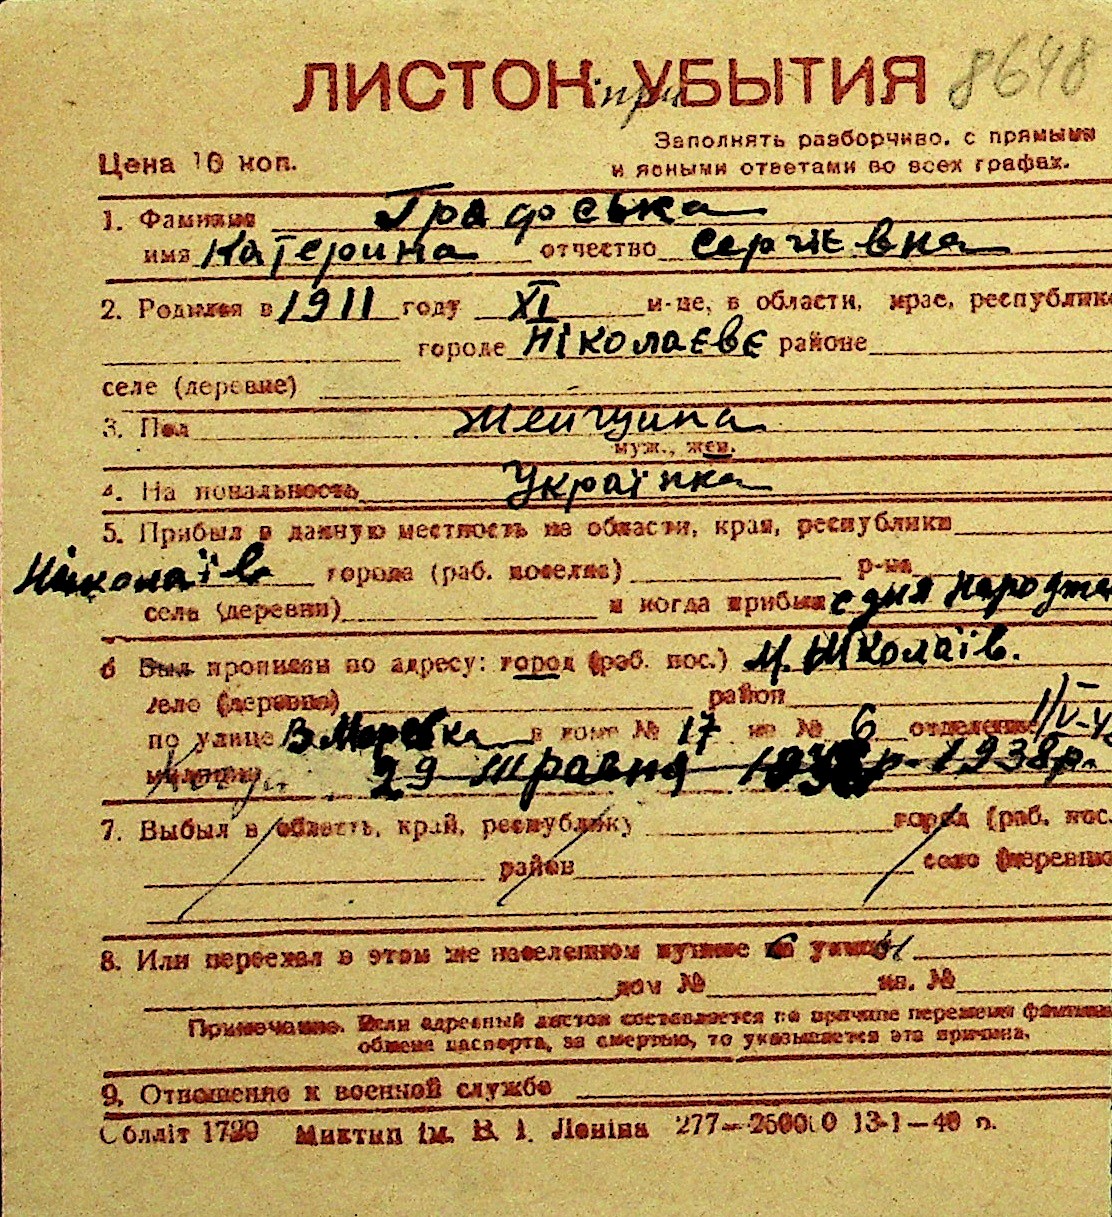 ЛИСТОК при УБЫТИЯ 8648
Заполнять разборчиво, с прямыми
Цена 10 коп. и ясными ответами во всех графах.
1. Фамилия Градоська
имя Катерина отчество Сергієвна
2. Родился в 1911 году XI м-це, в области, крае, республике
городе Ніколаєвє районе
селе (деревне)
3. Пол Женщина
муж., жен.
4. Национальность Українка
5. Прибыл в данную местность из области, края, республики
Ніколаїв города (раб. поселка) р-на
села (деревни) и когда прибыл с дня народже
6 Был прописан по адресу: город (раб. пос.) м. Ніколаїв.
село (деревне) район
по улице в доме № 17 кв. № 6 отделение
милиции 29 травня р. 1938р.
7. Выбыл в область, край, республику город (раб. пос.
район село (деревню
8. Или переехал в этом же населенном пункте по улице
дом № кв. №
Примечание. Если адресный листок составляется по причине перемены фамилии
обмена паспорта, за смертью, то указывается эта причина.
9. Отношение к военной службе
Облліт 1729 Миктип ім. В. І. Леніна 277—260010 13-1—40 р.